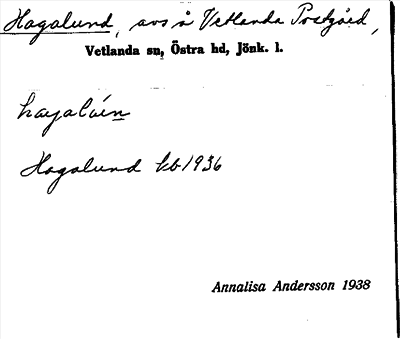 Hagalund, avs å Vetlanda Prästgård,
Vetlanda sn, Östra hd, Jönk. l.
Hagalund kb 1936
Annalisa Andersson 1938